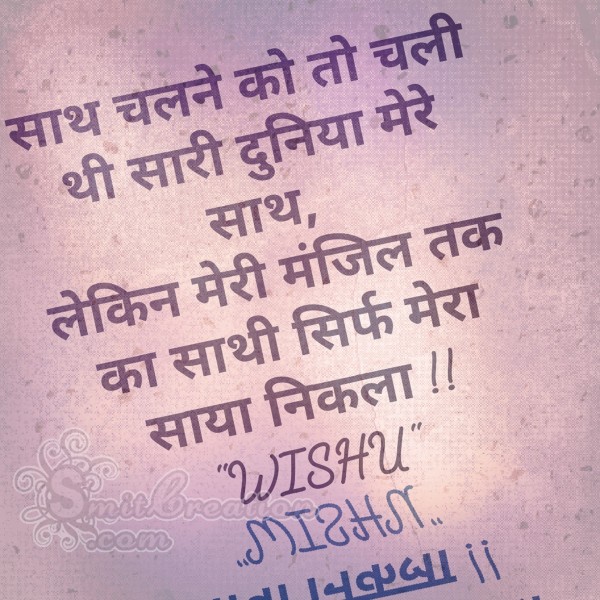 साथ चलने को तो चली
थी सारी दुनिया मेरे
साथ,
लेकिन मेरी मंजिल तक
का साथी सिर्फ मेरा
साया निकला !!
"WISHU"
SmitCreation
.com